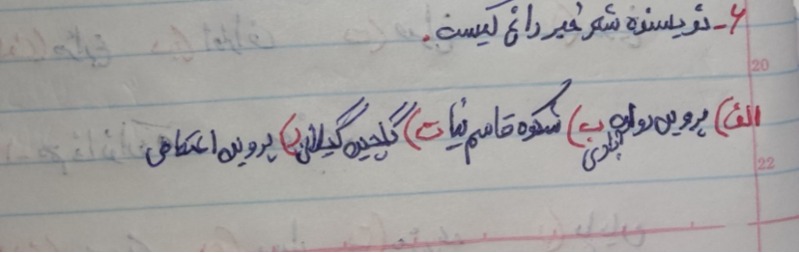 ۶- نویسنده شعر خبر داغ کیست.
20
الف) پروین دولت آبادی ب) شکوه قاسم نیا ت) گلچین گیلانی پ) پروین اعتصامی
22